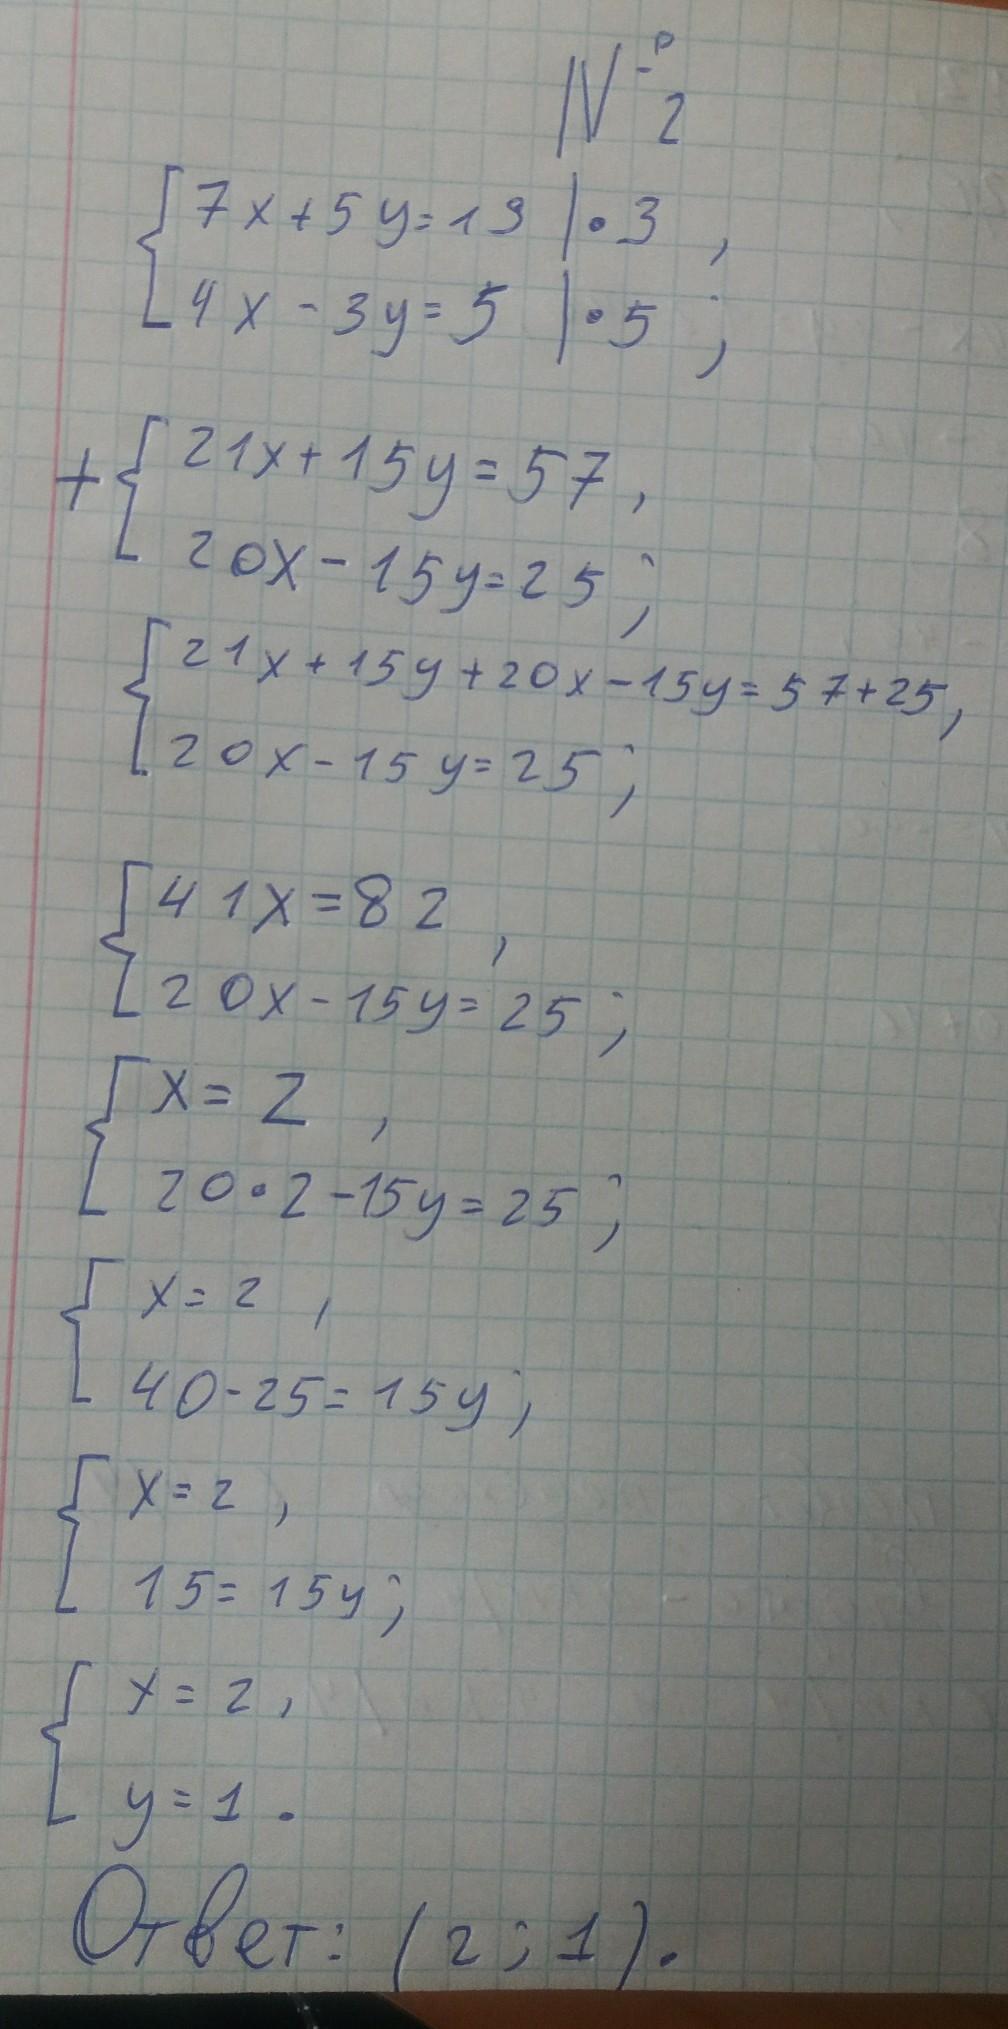 №2
{7x+5y=19 |·3 ,
4x-3y=5 |·5 ;
+{21x+15y=57,
20x-15y=25;
{21x+15y+20x-15y=57+25,
20x-15y=25;
{41x=82,
20x-15y=25;
{x=2,
20·2-15y=25;
{x=2,
40-25=15y;
{x=2,
15=15y;
{x=2,
y=1.
Ответ: (2;1).